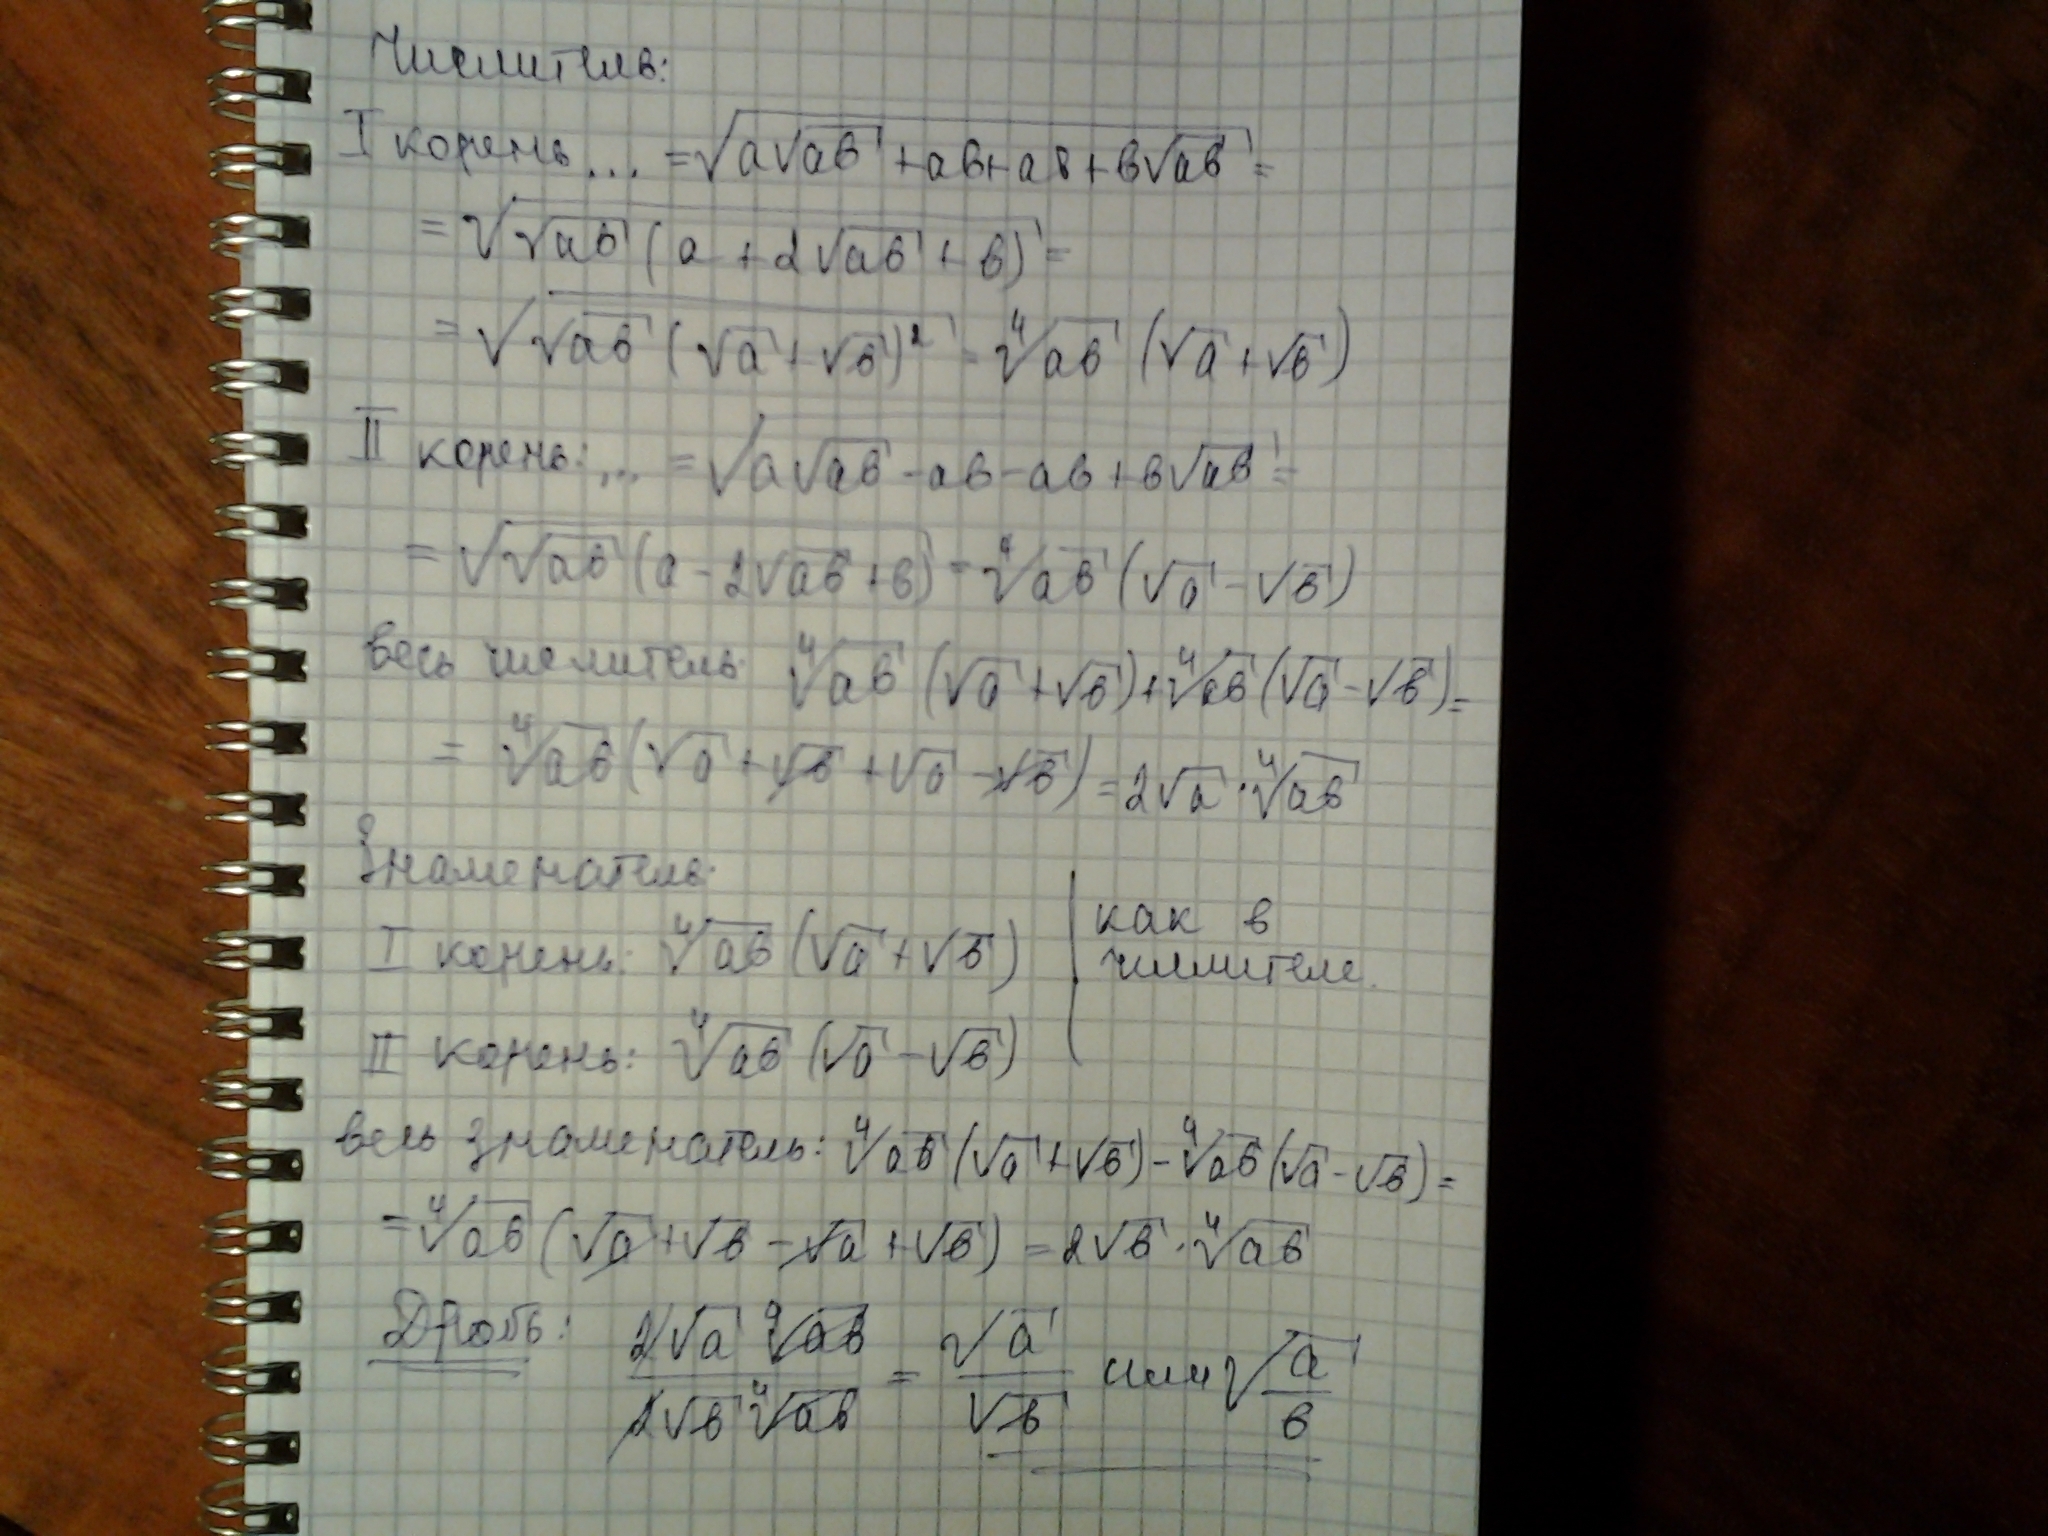 Числитель:
I корень ... = √(a√(ab) + ab + ab + b√(ab)) =
= √(√(ab) (a + 2√(ab) + b)) =
= √(√(ab) (√a + √b)²) = ⁴√(ab) (√a + √b)
II корень: ... = √(a√(ab) - ab - ab + b√(ab)) =
= √(√(ab) (a - 2√(ab) + b)) = ⁴√(ab) (√a - √b)
весь числитель: ⁴√(ab) (√a + √b) + ⁴√(ab) (√a - √b) =
= ⁴√(ab) (√a + √b + √a - √b) = 2√a · ⁴√(ab)
Знаменатель:
I корень: ⁴√(ab) (√a + √b) | как в
числителе.
II корень: ⁴√(ab) (√a - √b)
весь знаменатель: ⁴√(ab) (√a + √b) - ⁴√(ab) (√a - √b) =
= ⁴√(ab) (√a + √b - √a + √b) = 2√b · ⁴√(ab)
Дробь: 2√a ⁴√(ab) / 2√b ⁴√(ab) = √a / √b или √(a/b)